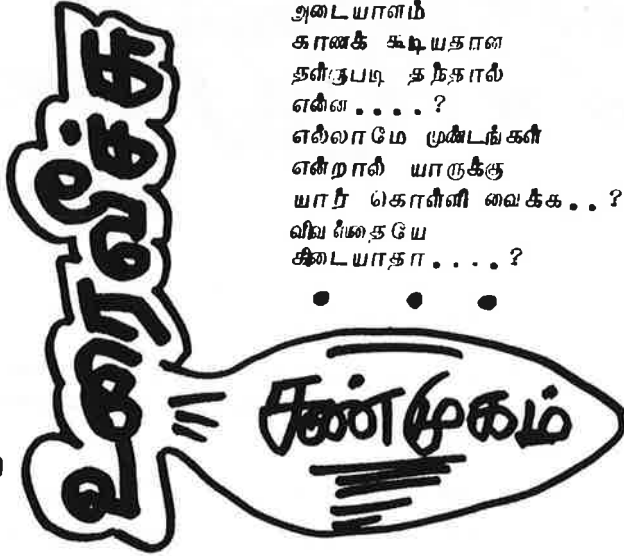 அடையாளம்
காணக் கூடியதான
தள்ளுபடி தந்தால்
என்ன . . . . ?
எல்லாமே முண்டங்கள்
என்றால் யாருக்கு
யார் கொள்ளி வைக்க . . ?
விவஸ்தையே
கிடையாதா . . . . ?
உரைவீச்சு
சண்முகம்